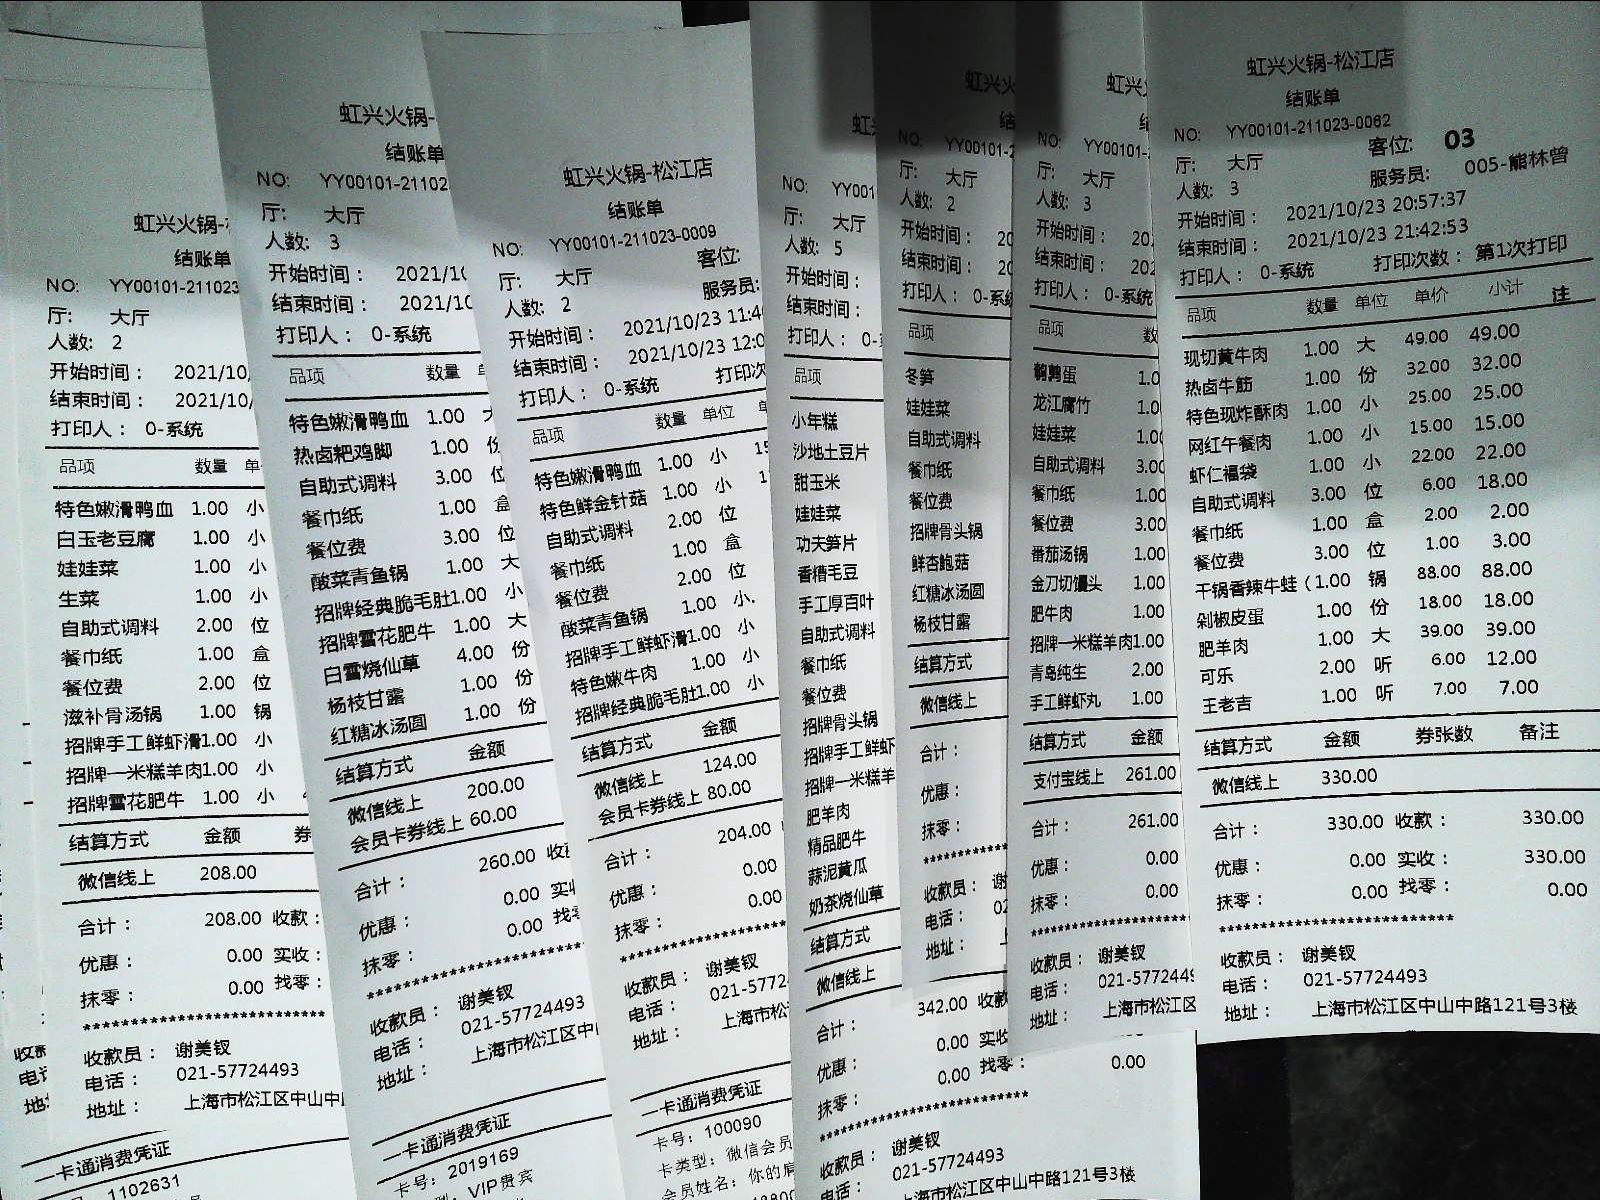 虹兴火锅-松
结账单
NO: YY00101-211023
厅: 大厅
人数: 2
开始时间： 2021/10/
结束时间： 2021/10/
打印人： 0-系统
品项 数量 单
特色嫩滑鸭血 1.00 小
白玉老豆腐 1.00 小
娃娃菜 1.00 小
生菜 1.00 小
自助式调料 2.00 位
餐巾纸 1.00 盒
餐位费 2.00 位
滋补骨汤锅 1.00 锅
招牌手工鲜虾滑1.00 小
招牌一米糕羊肉1.00 小
招牌雪花肥牛 1.00 小
结算方式 金额 券
微信线上 208.00
合计： 208.00 收款：
优惠： 0.00 实收：
抹零： 0.00 找零：
***************************
收款员： 谢美钗
电话： 021-57724493
地址： 上海市松江区中山中
一卡通消费凭证
号 1102631
虹兴火锅-
结账单
NO: YY00101-21102
厅: 大厅
人数: 3
开始时间： 2021/10
结束时间： 2021/10
打印人： 0-系统
品项 数量
特色嫩滑鸭血 1.00 大
热卤耙鸡脚 1.00 份
自助式调料 3.00 位
餐巾纸 1.00 盒
餐位费 3.00 位
酸菜青鱼锅 1.00 大
招牌经典脆毛肚1.00 小
招牌雪花肥牛 1.00 大
白雪烧仙草 4.00 份
杨枝甘露 1.00 份
红糖冰汤圆 1.00 份
结算方式 金额
微信线上 200.00
会员卡券线上 60.00
合计： 260.00 收
优惠： 0.00 实
抹零： 0.00 找
***************************
收款员： 谢美钗
电话： 021-57724493
地址： 上海市松江区中
一卡通消费凭证
卡号：2019169
型：VIP贵宾
虹兴火锅-松江店
结账单
NO: YY00101-211023-0009
厅: 大厅 客位:
人数: 2 服务员:
开始时间： 2021/10/23 11:4
结束时间： 2021/10/23 12:0
打印人： 0-系统 打印次
品项 数量 单位
特色嫩滑鸭血 1.00 小
特色鲜金针菇 1.00 小
自助式调料 2.00 位
餐巾纸 1.00 盒
餐位费 2.00 位
酸菜青鱼锅 1.00 小
招牌手工鲜虾滑1.00 小
特色嫩牛肉 1.00 小
招牌经典脆毛肚1.00 小
结算方式 金额
微信线上 124.00
会员卡券线上 80.00
合计： 204.00
优惠： 0.00
抹零： 0.00
********************
收款员： 谢美钗
电话： 021-5772
地址： 上海市松
一卡通消费凭证
卡号：100090
卡类型：微信会员
会员姓名：你的
虹
NO: YY001
厅: 大厅
人数: 5
开始时间：
结束时间：
打印人： 0-
品项
小年糕
沙地土豆片
甜玉米
娃娃菜
功夫笋片
香糟毛豆
手工厚百叶
自助式调料
餐巾纸
餐位费
招牌骨头锅
招牌手工鲜虾
招牌一米糕羊
肥羊肉
精品肥牛
蒜泥黄瓜
奶茶烧仙草
结算方式
微信线上
合计： 342.00 收款
优惠： 0.00 实收
抹零： 0.00 找零： 0.00
***************************
收款员： 谢美钗
电话： 021-57724493
地址： 上海市松江区中山中路121号3楼
虹兴火
结
NO: YY00101-2
厅: 大厅
人数: 2
开始时间： 20
结束时间： 20
打印人： 0-系
品项
冬笋
娃娃菜
自助式调料
餐巾纸
餐位费
招牌骨头锅
鲜杏鲍菇
红糖冰汤圆
杨枝甘露
结算方式
微信线上
合计：
优惠：
抹零：
***********
收款员： 谢
电话： 02
地址： 上
虹兴
结
NO: YY00101-
厅: 大厅
人数: 3
开始时间： 20
结束时间： 202
打印人： 0-系统
品项 数
鹌鹑蛋 1.0
龙江腐竹 1.0
娃娃菜 1.00
自助式调料 3.00
餐巾纸 1.00
餐位费 3.00
番茄汤锅 1.00
金刀切馒头 1.00
肥牛肉 1.00
招牌一米糕羊肉1.00
青岛纯生 2.00
手工鲜虾丸 1.00
结算方式 金额
支付宝线上 261.00
合计： 261.00
优惠： 0.00
抹零： 0.00
********************
收款员： 谢美钗
电话： 021-5772449
地址： 上海市松江区
虹兴火锅-松江店
结账单
NO: YY00101-211023-0062
厅: 大厅 客位: 03
人数: 3 服务员: 005-熊林曾
开始时间： 2021/10/23 20:57:37
结束时间： 2021/10/23 21:42:53
打印人： 0-系统 打印次数： 第1次打印
品项 数量 单位 单价 小计 注
现切黄牛肉 1.00 大 49.00 49.00
热卤牛筋 1.00 份 32.00 32.00
特色现炸酥肉 1.00 小 25.00 25.00
网红午餐肉 1.00 小 15.00 15.00
虾仁福袋 1.00 小 22.00 22.00
自助式调料 3.00 位 6.00 18.00
餐巾纸 1.00 盒 2.00 2.00
餐位费 3.00 位 1.00 3.00
干锅香辣牛蛙（1.00 锅 88.00 88.00
剁椒皮蛋 1.00 份 18.00 18.00
肥羊肉 1.00 大 39.00 39.00
可乐 2.00 听 6.00 12.00
王老吉 1.00 听 7.00 7.00
结算方式 金额 券张数 备注
微信线上 330.00
合计： 330.00 收款： 330.00
优惠： 0.00 实收： 330.00
抹零： 0.00 找零： 0.00
***************************
收款员： 谢美钗
电话： 021-57724493
地址： 上海市松江区中山中路121号3楼